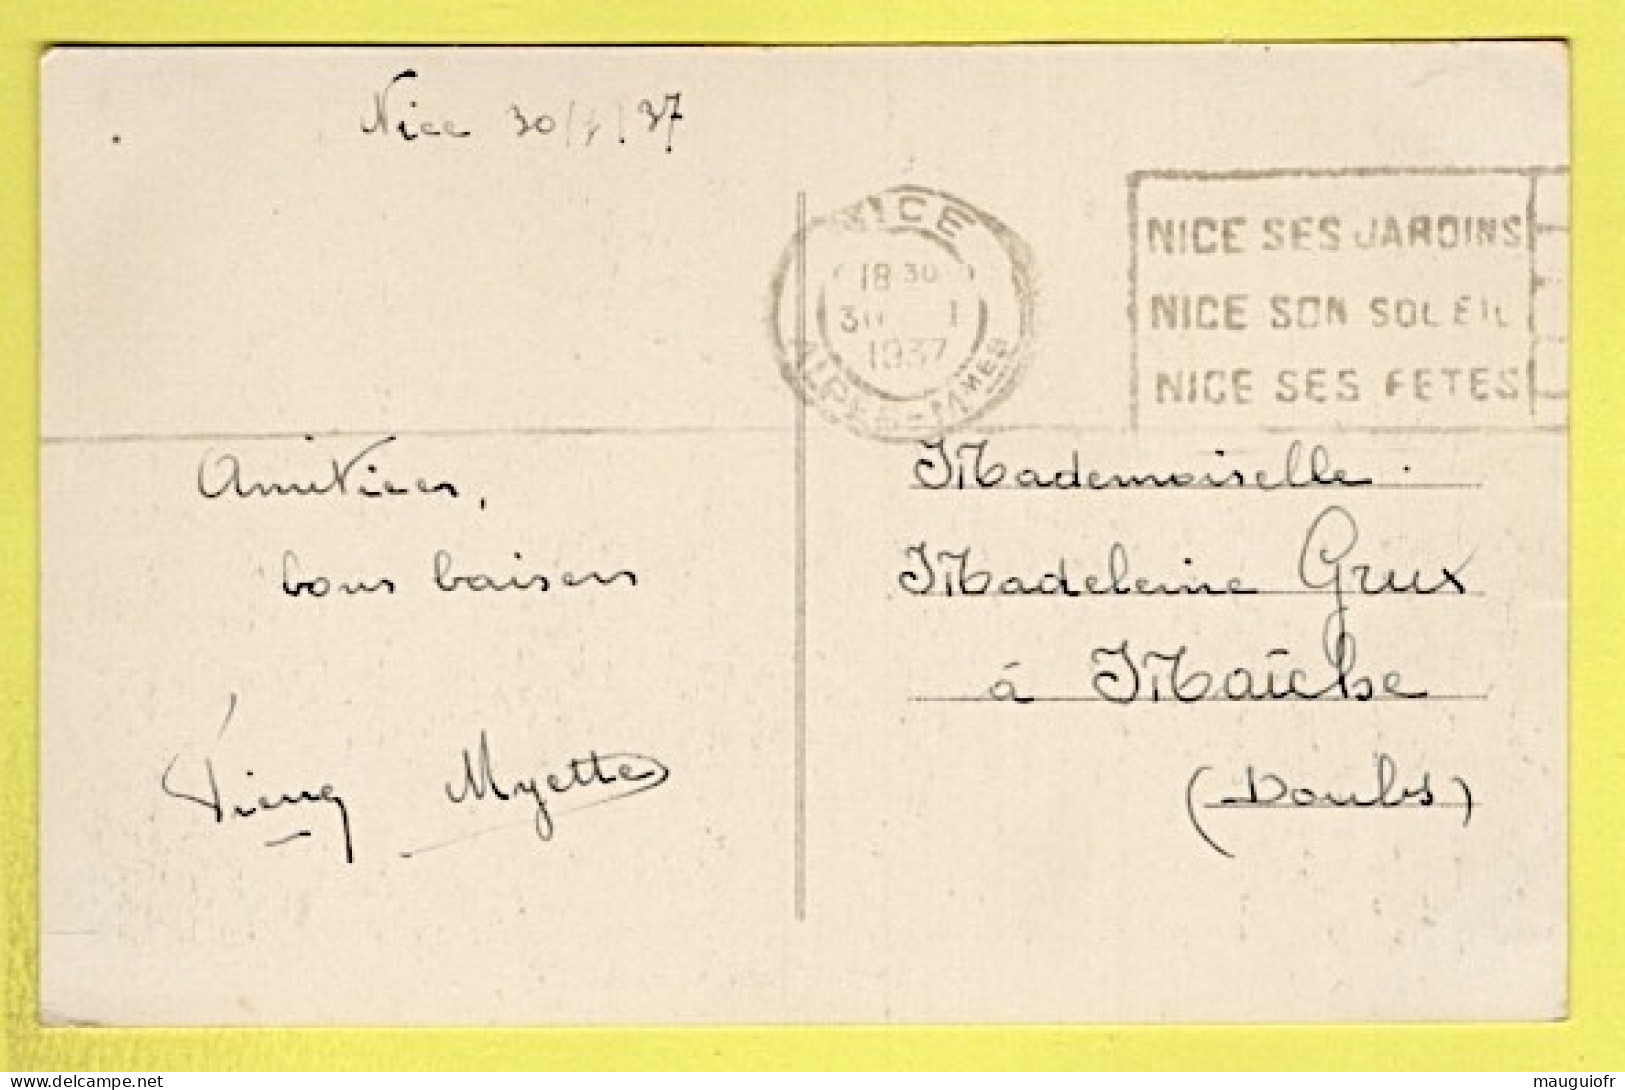 Nice 30/1/37
NICE
18 30
30 1
1937
ALPES-MMES
NICE SES JARDINS
NICE SON SOLEIL
NICE SES FETES
Amitiées,
bons baisers
Myette
Mademoiselle
Madeleine Grux
à Maîche
(Doubs)
delcampe.net
mauguiofr